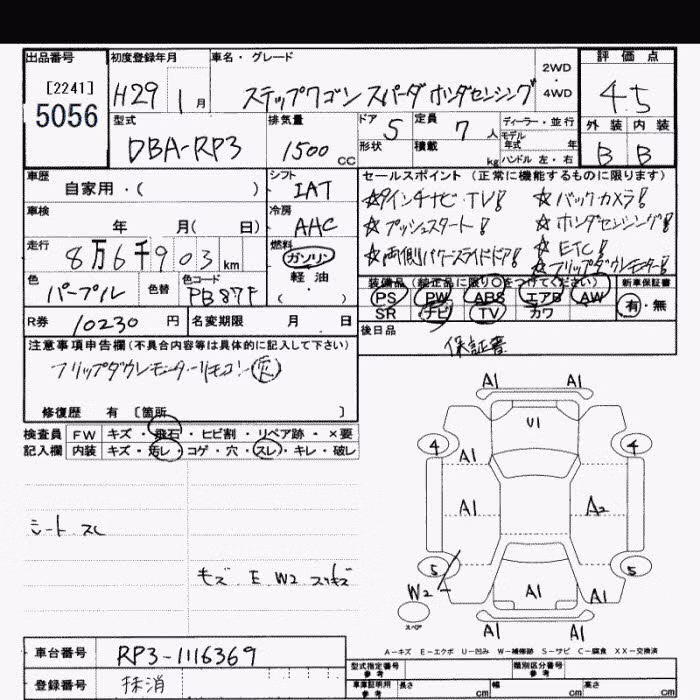 出品番号
[2241]
5056
初度登録年月
H29 1月
車名・グレード
ステップワゴン スパーダ ホンダセンシング
2WD
・
4WD
評価点
4.5
外装 内装
B B
型式
DBA-RP3
排気量
1500 CC
ドア 5
形状
定員 7 人
積載 kg
ディーラー・並行
モデル
年式 年
ハンドル 左・右
車歴
自家用・( )
車検
年 月( 日)
走行
8万6千903 km
色
パープル
色替
色コード
PB87P
シフト
IAT
冷房
AAC
燃料
ガソリン
軽油
( )
セールスポイント(正常に機能するものに限ります)
☆9インチナビ・TV! ☆バックカメラ!
☆プッシュスタート! ☆ホンダセンシング!
☆両側パワースライドドア! ☆ETC!
☆フリップダウンモニター!
装備品(純正品に限り○をつけてください)
PS PW ABS エアB AW
SR ナビ TV カワ
新車保証書
有・無
R券 10230 円
名変期限 月 日
後日品
保証書
注意事項申告欄(不具合内容等は具体的に記入して下さい)
フリップダウンモニターリモコン 欠
修復歴 有 〔箇所 〕
検査員 FW キズ・飛石・ヒビ割・リペア跡・×要
記入欄 内装 キズ・汚レ・コゲ・穴・スレ・キレ・破レ
シート スレ
キズ E W2 スリキズ
A1 A1
U1
4 4
A1
A1 A2
5 5
W2
A1 A1
スペア
A1 A1
A-キズ E-エクボ U-凹み W-補修跡 S-サビ C-腐食 XX-交換済
車台番号 RP3-1116369
登録番号 抹消
型式指定番号
参考
類別区分番号
参考
車庫証明用
参考
長さ cm 幅 cm 高さ cm